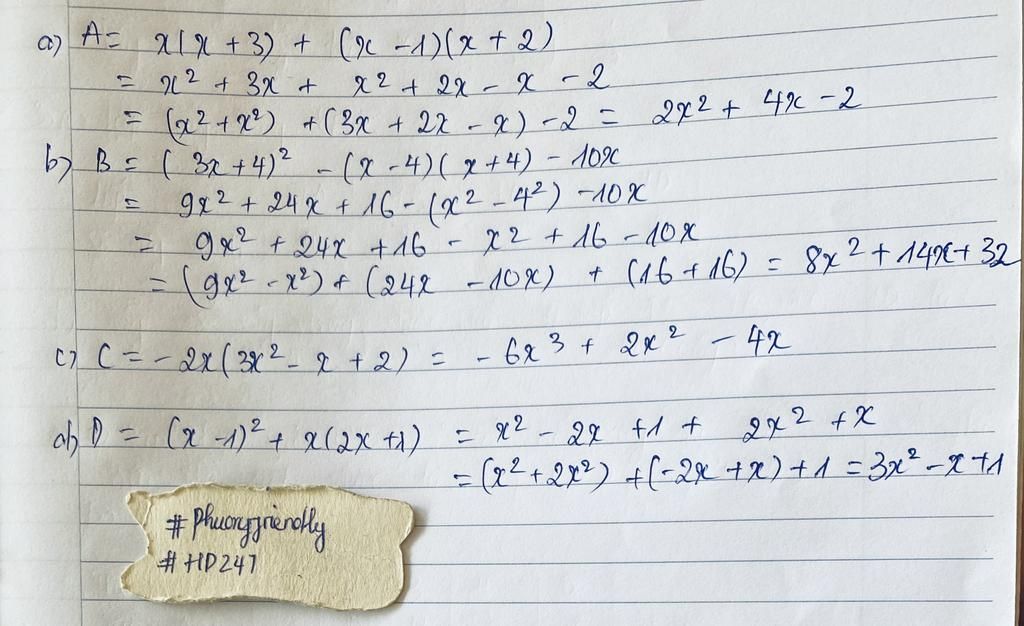 a) A = x(x + 3) + (x - 1)(x + 2)
= x² + 3x + x² + 2x - x - 2
= (x² + x²) + (3x + 2x - x) - 2 = 2x² + 4x - 2
b) B = (3x + 4)² - (x - 4)(x + 4) - 10x
= 9x² + 24x + 16 - (x² - 4²) - 10x
= 9x² + 24x + 16 - x² + 16 - 10x
= (9x² - x²) + (24x - 10x) + (16 + 16) = 8x² + 14x + 32
c) C = - 2x(3x² - x + 2) = - 6x³ + 2x² - 4x
d) D = (x - 1)² + x(2x + 1) = x² - 2x + 1 + 2x² + x
= (x² + 2x²) + (-2x + x) + 1 = 3x² - x + 1
# HD247